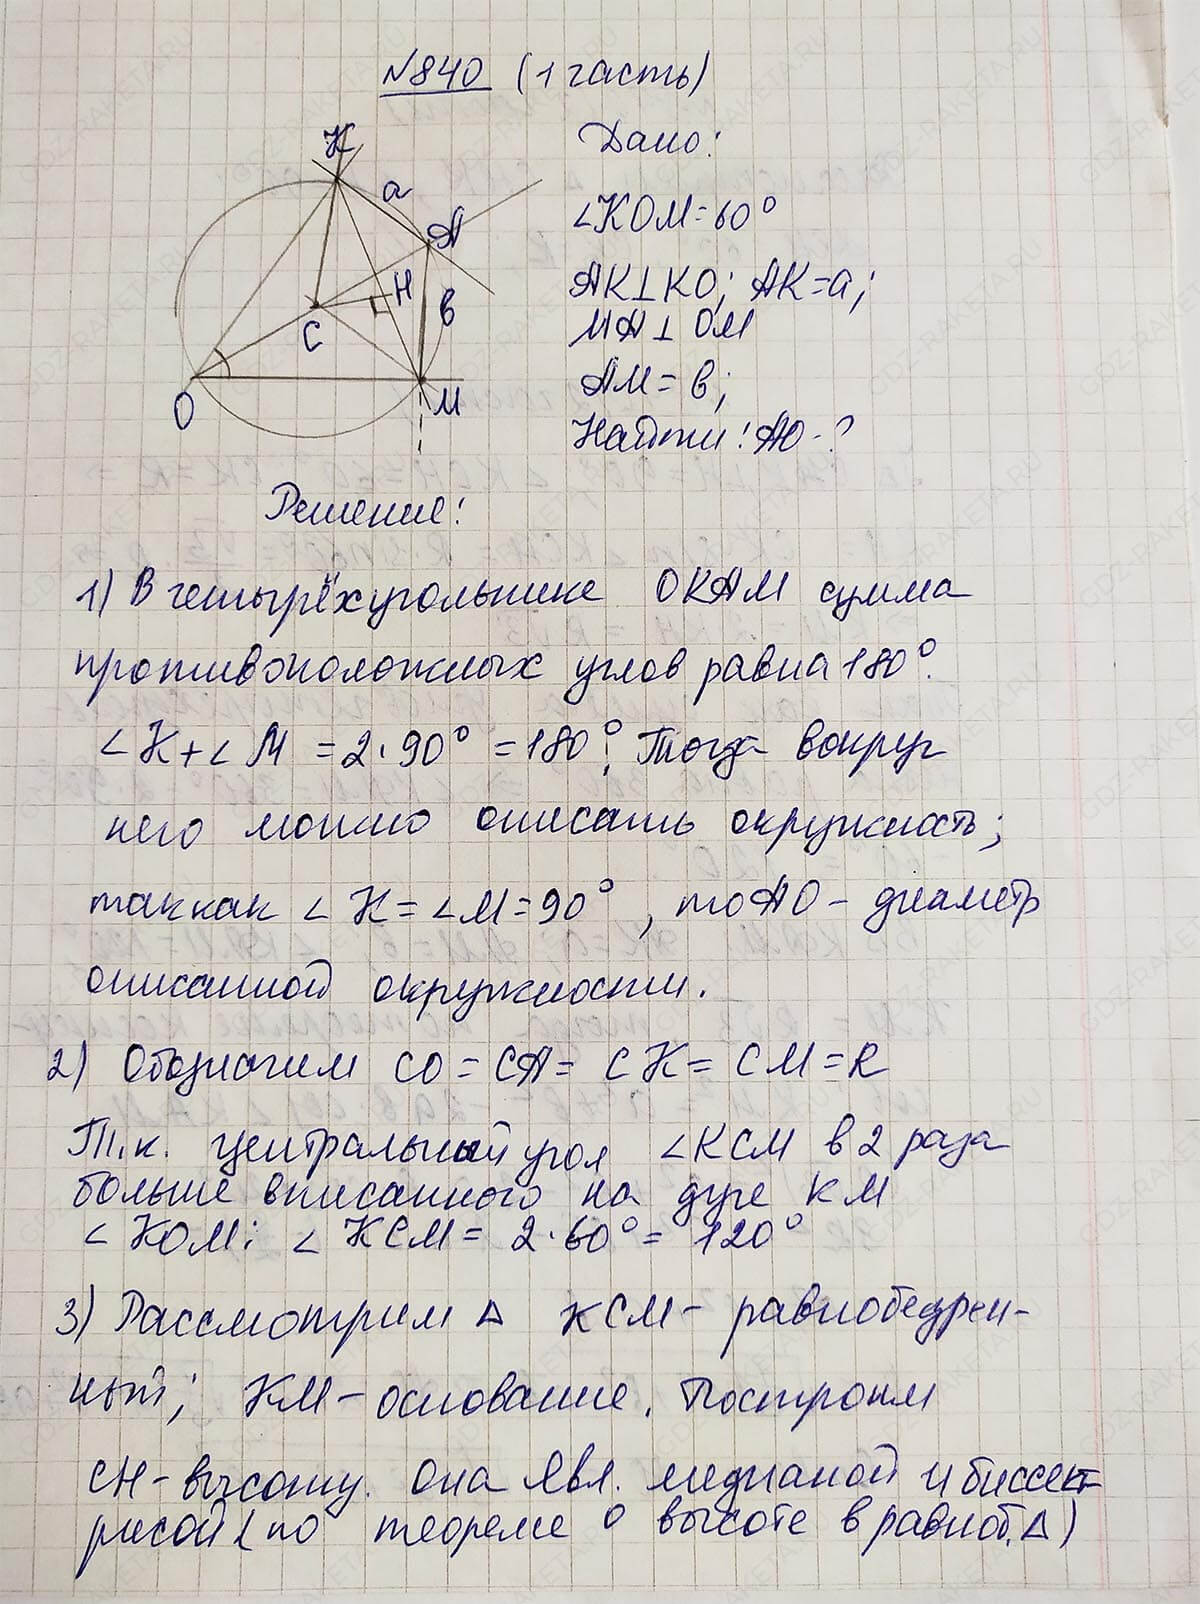 №840 (1 часть)
K
a
A
H
в
C
O
M
Дано:
∠KOM=60°
AK⊥KO; AK=a;
MA⊥OM
AM=в;
Найти: AO-?
Решение:
1) В четырёхугольнике OKAM сумма
противоположных углов равна 180°.
∠K+∠M=2·90°=180°, Тогда вокруг
него можно описать окружность;
так как ∠K=∠M=90°, то AO – диаметр
описанной окружности.
2) Обозначим CO=CA=CK=CM=R
Т.к. центральный угол ∠KCM в 2 раза
больше вписанного на дуге KM
∠KOM: ∠KCM=2·60°=120°
3) Рассмотрим Δ KCM – равнобедрен-
ный; KM – основание. Построим
CH – высоту. Она явл. медианой и биссект
рисой (по теореме о высоте в равноб. Δ)
GDZ-RAKETA.RU